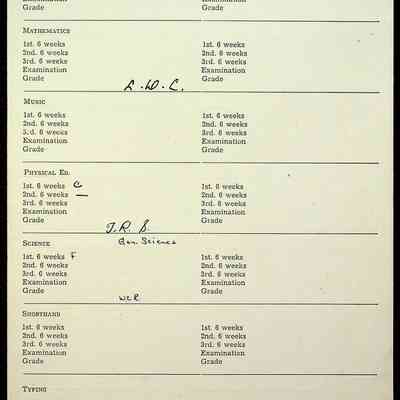 Grade Grade
MATHEMATICS
1st. 6 weeks 1st. 6 weeks
2nd. 6 weeks 2nd. 6 weeks
3rd. 6 weeks 3rd. 6 weeks
Examination Examination
Grade Grade
L.W.C.
MUSIC
1st. 6 weeks 1st. 6 weeks
2nd. 6 weeks 2nd. 6 weeks
3.d. 6 weeks 3rd. 6 weeks
Examination Examination
Grade Grade
PHYSICAL ED.
1st. 6 weeks C 1st. 6 weeks
2nd. 6 weeks — 2nd. 6 weeks
3rd. 6 weeks 3rd. 6 weeks
Examination Examination
Grade Grade
J.R.B.
SCIENCE Gen. Science
1st. 6 weeks F 1st. 6 weeks
2nd. 6 weeks 2nd. 6 weeks
3rd. 6 weeks 3rd. 6 weeks
Examination Examination
Grade Grade
WCR
SHORTHAND
1st. 6 weeks 1st. 6 weeks
2nd. 6 weeks 2nd. 6 weeks
3rd. 6 weeks 3rd. 6 weeks
Examination Examination
Grade Grade
TYPING